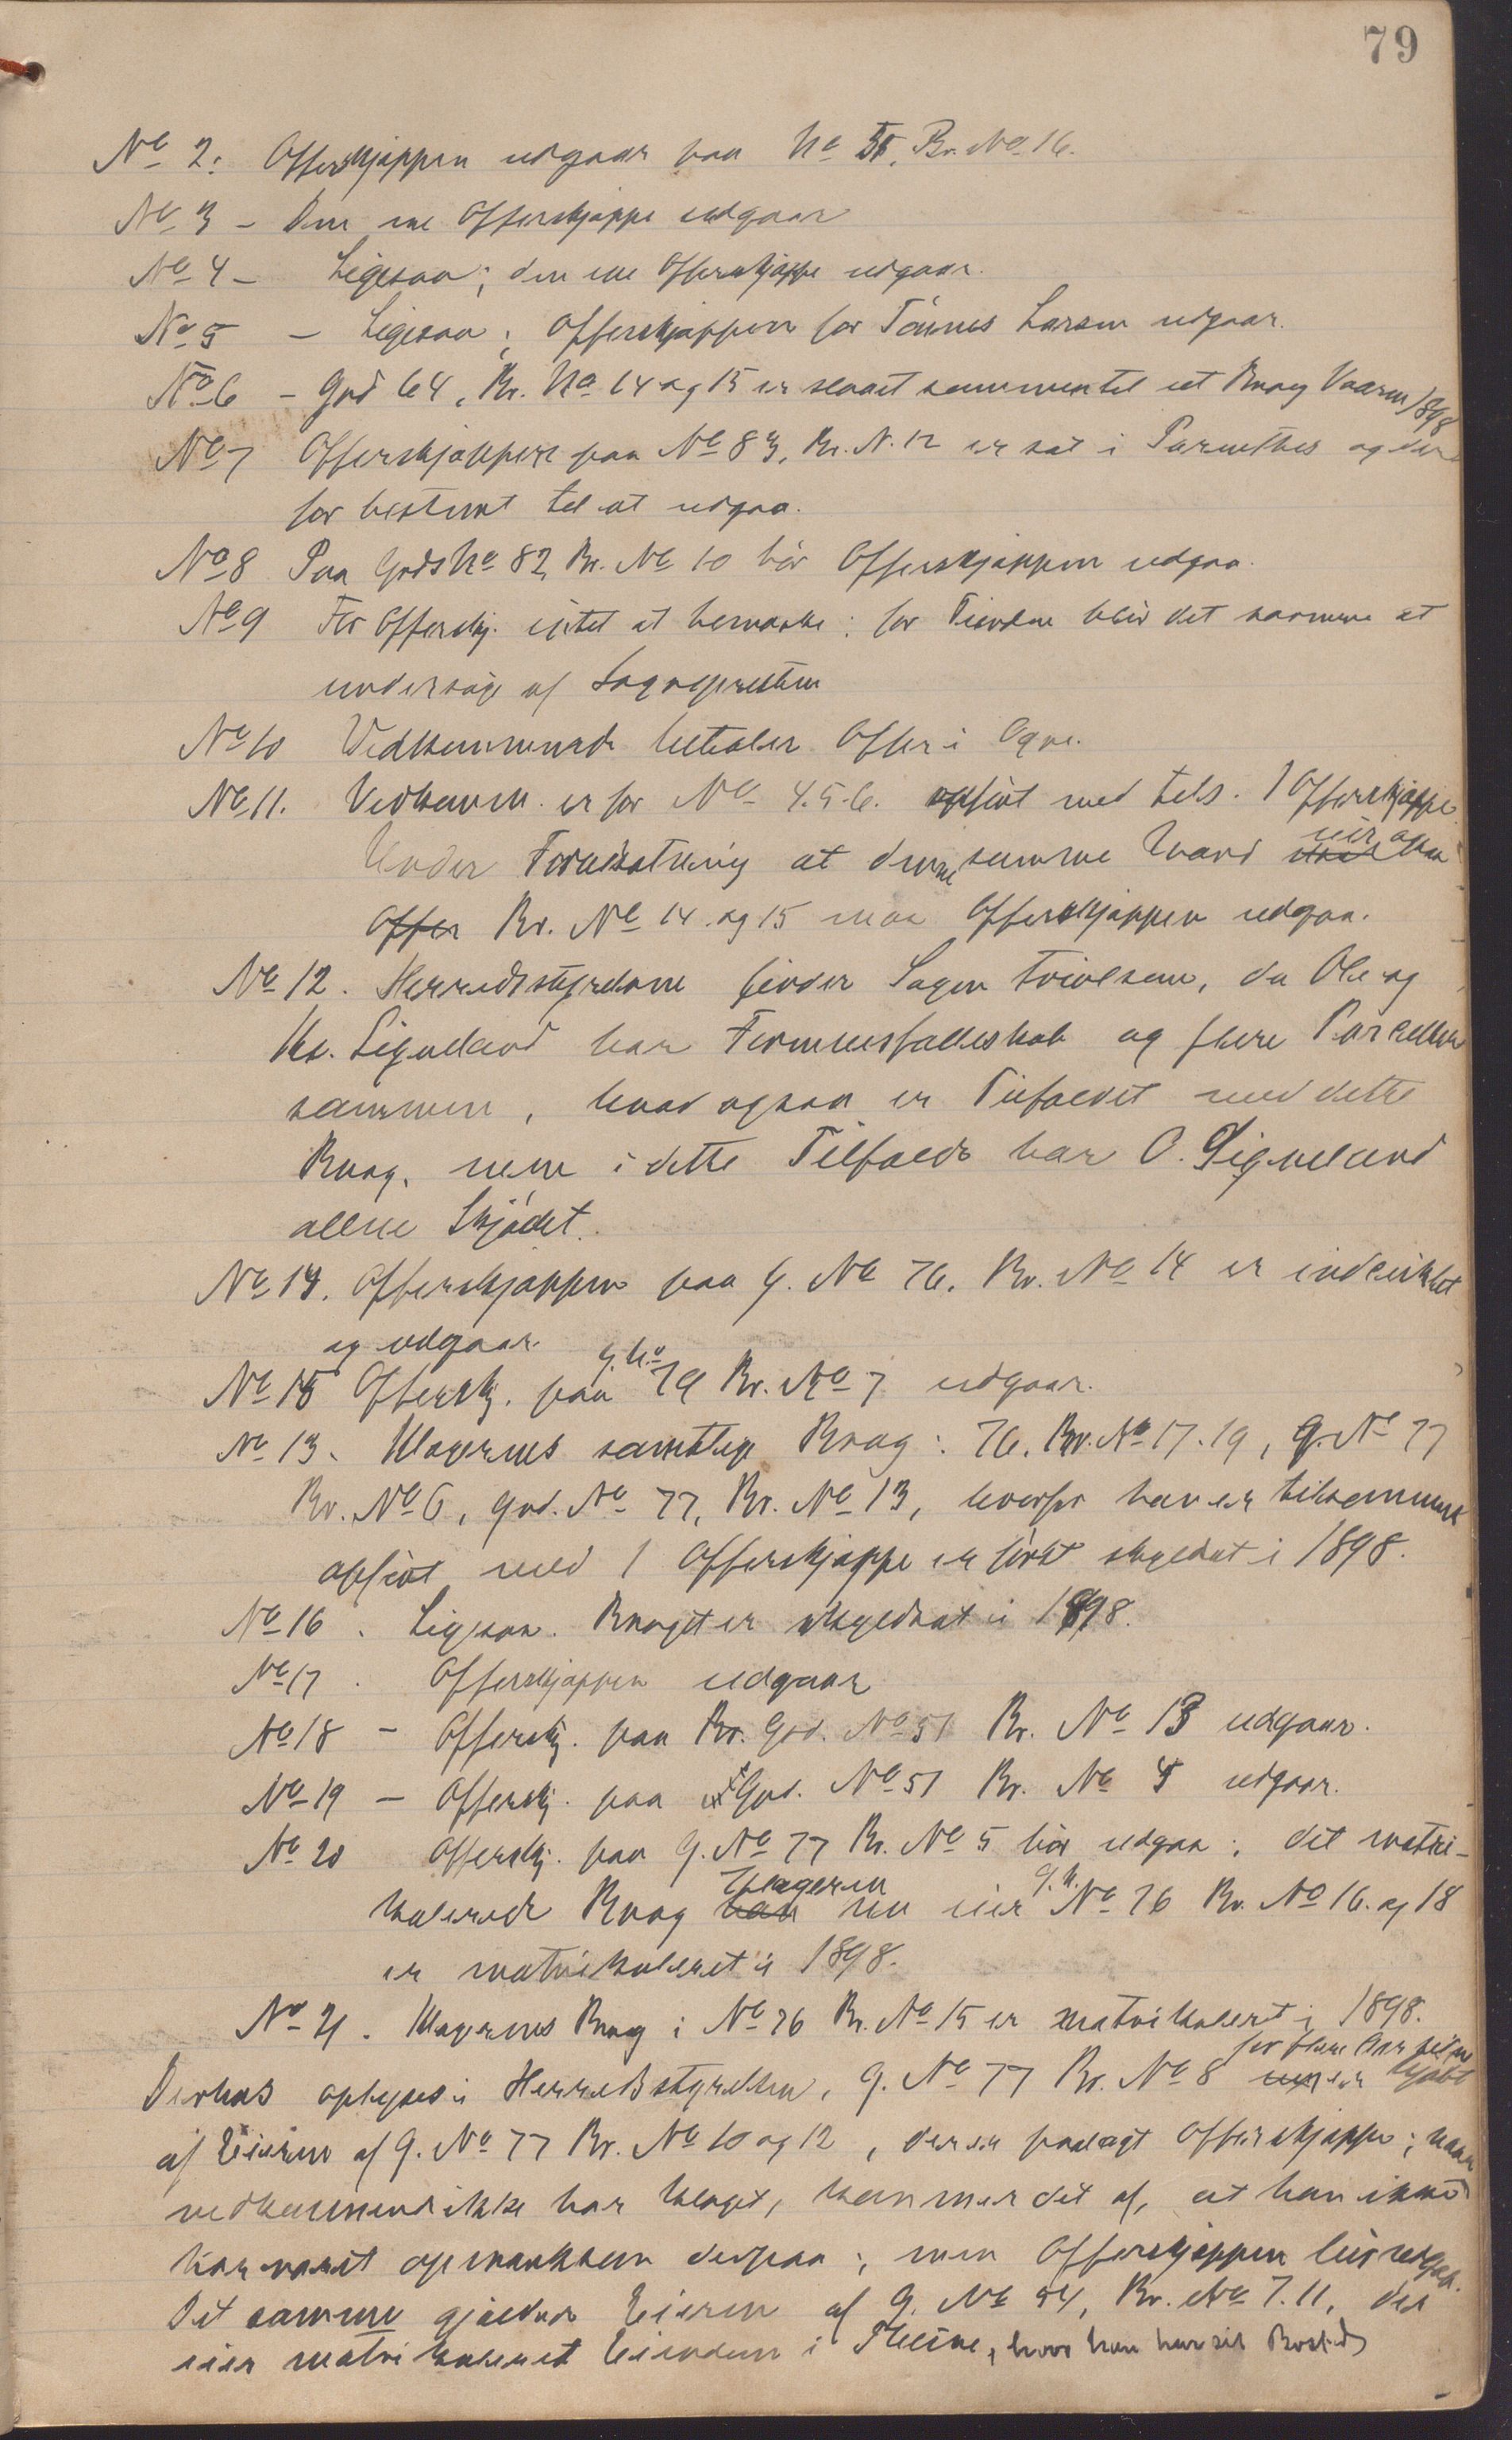 79
No 2. Offerskjæppen udgaar paa No 51, Br. No 16.
No 3 – Den ene Offerskjæppe udgaar
No 4 – Ligesaa; den ene Offerskjæppe udgaar.
No 5 – Ligesaa; Offerskjæppen for Tönnes Larsen udgaar.
No 6 – Grd 64, Br. No 14 og 15 er slaaet sammen til et Brug Vaaren 1898
No 7 Offerskjæppen paa No 83, Br. N. 12 er sat i Parenthes og der
for bestemt til at udgaa.
No 8 Paa Grds No 82, Br. No 10 bör Offerskjæppen udgaa.
No 9 For Offerskj. intet at bemærke; for Tienden blir det samme at
undersöge af Sognepresten
No 10 Vedkommende betaler Offer i Ogne.
No 11. Vedkomm. er for No 4.5.6. opfört med tils. 1 Offerskjæppe.
Under Forudsætning at denne samme Mand eier ogsaa
Offer Br. No 14 og 15 maa Offerskjæppen udgaa.
No 12. Herredsstyrelsen finder Sagen tvivlsom, da Ole og
Sigveland har Formuesfælleskab og flere Parceller
sammen, hvad ogsaa er Tilfældet med dette
Brug, men i dette Tilfælde har O. Sigveland
allene Skjödet.
No 14. Offerskjæppen paa G. No 76, Br. No 14 er indviklet
og udgaar.
No 15 Offerskj. paa G. No 79 Br. No 7 udgaar.
No 13. Klagerens samtlige Brug: 76, Br. No 17.19, G. No 77
Br. No 6, Grd. No 77, Br. No 13, hvorfor han er tilsammen
opfört med 1 Offerskjæppe er först skyldsat i 1898.
No 16. Ligesaa. Bruget er skyldsat i 1898.
No 17. Offerskjæppen udgaar
No 18 – Offerskj. paa Br. Grd. No 51 Br. No 13 udgaar.
No 19 – Offerskj. paa Grd. No 51 Br. No 4 udgaar.
No 20 Offerskj. paa G. No 77 Br. No 5 bör udgaa; det matri-
kulerede Brug han Klageren nu eier G. N. No 76 Br. No 16. og 18
er matrikuleret i 1898.
No 21. Klagerens Brug i No 76 Br. No 15 er matrikuleret i 1898.
Derhos oplyses i Herredsstyrelsen, G. No 77 Br. No 8 er for flere Aar siden kjöbt
af Eieren af G. No 77 Br. No 10 og 12, der er paalagt Offerskjæppe; naar
vedkommende ikke har klaget, kommer det af, at han ikke
har været opmærksom derpaa; men Offerskjæppen bör udgaa.
Det samme gjælder Eieren af G. No 54, Br. No 7.11, der
eier matrikuleret Eiendom i, hvor han har sit Bosted